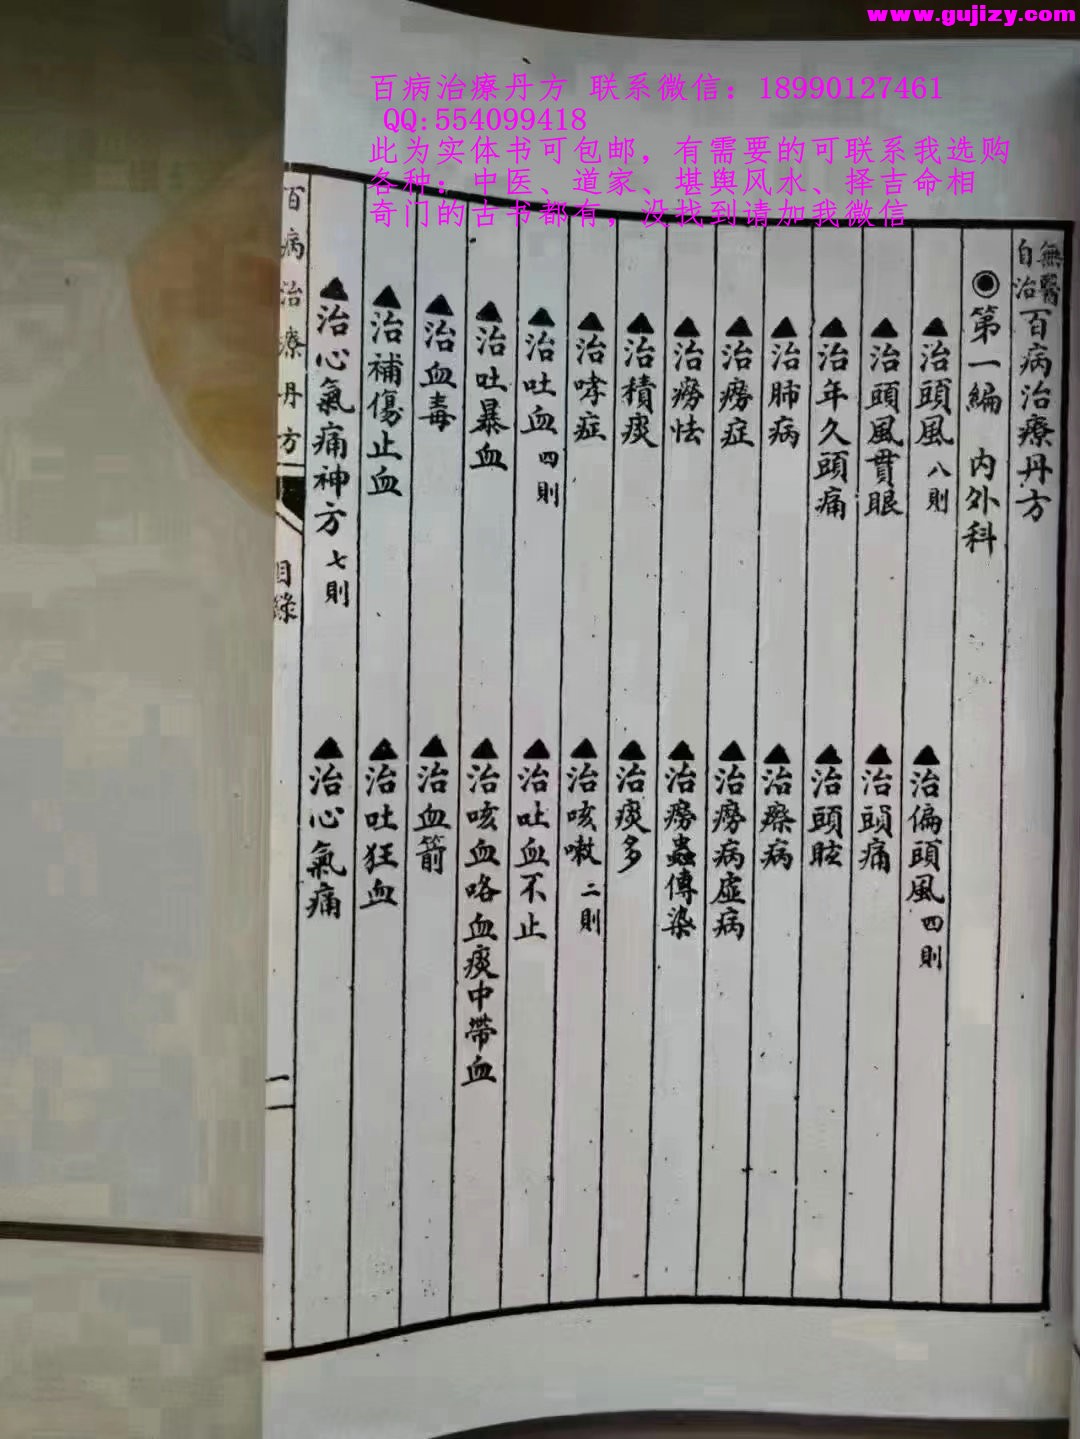 www.gujizy.com
百病治療丹方 联系微信：18990127461
QQ:554099418
此为实体书可包邮，有需要的可联系我选购
各种：中医、道家、堪舆风水、择吉命相
奇门的古书都有，没找到请加我微信
無醫自治百病治療丹方
◉第一編 內外科
▲治頭風 八則 ▲治偏頭風 四則
▲治頭風貫眼 ▲治頭痛
▲治年久頭痛 ▲治頭眩
▲治肺病 ▲治瘵病
▲治癆症 ▲治癆病虛病
▲治癆怯 ▲治癆蟲傳染
▲治積痰 ▲治痰多
▲治哮症 ▲治咳嗽 二則
▲治吐血 四則 ▲治吐血不止
▲治吐暴血 ▲治咳血咯血痰中帶血
▲治血毒 ▲治血箭
▲治補傷止血 ▲治吐狂血
▲治心氣痛神方 七則 ▲治心氣痛
百病治療丹方 目錄 一